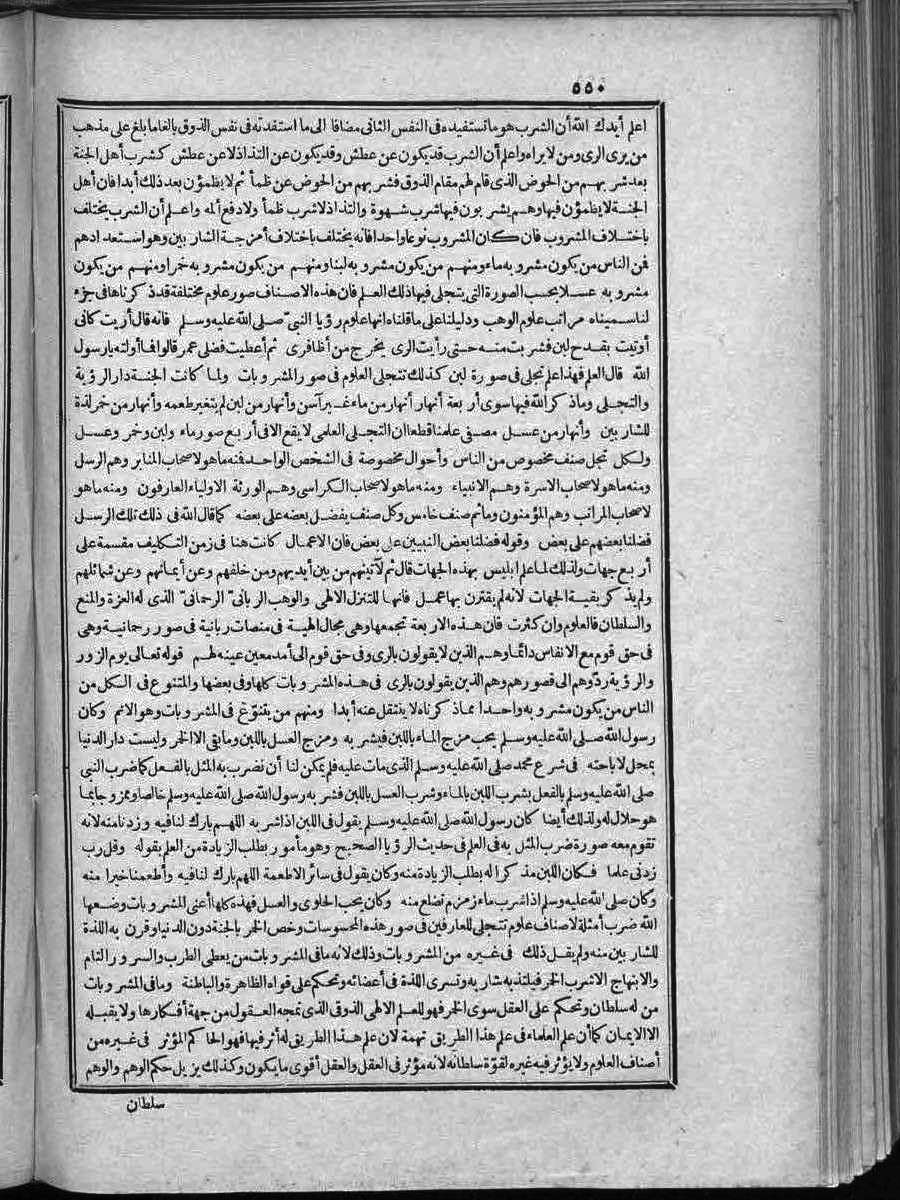 ٥٥٠
اعلم أيدك الله أن الشرب هو ما تستفيده فى النفس الثانى مضافا الى ما استفدته فى نفس الذوق بالغا ما بلغ على مذهب
من يرى الرى ومن لا يراه واعلم أن الشرب قد يكون عن عطش وقد يكون عن التذاذ لا عن عطش كشرب أهل الجنة
بعد شربهم من الحوض الذى قام لهم مقام الذوق فشربهم من الحوض عن ظمأ ثم لا يظمؤن بعد ذلك أبدا فان أهل
الجنة لا يظمؤن فيها وهم يشربون فيها شرب شهوة والتذاذ لا شرب ظمأ ولا دفع ألمه واعلم أن الشرب يختلف
باختلاف المشروب فان كان المشروب نوعا واحدا فانه يختلف باختلاف أمزجة الشاربين وهو استعدادهم
فمن الناس من يكون مشروبه ماء ومنهم من يكون مشروبه لبنا ومنهم من يكون مشروبه خمرا ومنهم من يكون
مشروبه عسلا بحسب الصورة التى يتجلى فيها ذلك العلم فان هذه الاصناف صور علوم مختلفة قد ذكرناها فى جزء
لنا سميناه مراتب علوم الوهب ودليلنا على ما قلناه انها علوم رؤيا النبىّ صلى الله عليه وسلم فانه قال أريت كانى
أوتيت بقدح لبن فشربت منه حتى رأيت الرى يخرج من أظافرى ثم أعطيت فضلى عمر قالوا فما أولته يا رسول
الله قال العلم فهذا علم تجلى فى صورة لبن كذلك تتجلى العلوم فى صور المشروبات ولما كانت الجنة دار الرؤية
والتجلى وما ذكر الله فيها سوى أربعة أنهار أنهار من ماء غير آسن وأنهار من لبن لم يتغير طعمه وأنهار من خمر لذة
للشاربين وأنهار من عسل مصفى علمنا قطعا ان التجلى العلمى لا يقع الا فى أربع صور ماء ولبن وخمر وعسل
ولكل تجل صنف مخصوص من الناس وأحوال مخصوصة فى الشخص الواحد فنه ما هو لاصحاب المنابر وهم الرسل
ومنه ما هو لاصحاب الاسرة وهم الانبياء ومنه ما هو لاصحاب الكراسى وهم الورثة الاولياء العارفون ومنه ما هو
لاصحاب المراتب وهم المؤمنون وما ثم صنف خامس وكل صنف يفضل بعضه على بعضه كما قال الله فى ذلك تلك الرسل
فضلنا بعضهم على بعض وقوله فضلنا بعض النبيين على بعض فان الاعمال كانت هنا فى زمن التكليف مقسمة على
أربع جهات ولذلك لما علم ابليس بهذه الجهات قال ثم لآتينهم من بين أيديهم ومن خلفهم وعن أيمانهم وعن شمائلهم
ولم يذكر بقية الجهات لانه لم يقترن بها عمل فانها للتنزل الالهى والوهب الربانىّ الرحمانىّ الذى له العزة والمنع
والسلطان فالعلوم وان كثرت فان هذه الاربعة تجمعها وهى مجال الهية فى منصات ربانية فى صور رحمانية وهى
فى حق قوم مع الانفاس دائما وهم الذين لا يقولون بالرى وفى حق قوم الى أمد معين عينه لهم قوله تعالى يوم الزور
والرؤية ردّوهم الى قصورهم وهم الذين يقولون بالرى فى هذه المشروبات كلها وفى بعضها والمتنوع فى الكل من
الناس من يكون مشروبه واحدا مما ذكرناه لا ينتقل عنه أبدا ومنهم من يتنوّع فى المشروبات وهو الاتم وكان
رسول الله صلى الله عليه وسلم يحب مزج الماء باللبن فيشربه ومزج العسل باللبن وما بقى الا الخمر وليست دار الدنيا
بمحل لاباحته فى شرع محمد صلى الله عليه وسلم الذى مات عليه فلم يمكن لنا أن نضرب به المثل بالفعل كما ضرب النبى
صلى الله عليه وسلم بالفعل بشرب اللبن بالماء وشرب العسل باللبن فشربه رسول الله صلى الله عليه وسلم خالصا وممزوجا بما
هو حلال له ولذلك أيضا كان رسول الله صلى الله عليه وسلم يقول فى اللبن اذا شربه اللهم بارك لنا فيه وزدنا منه لانه
تقوم معه صورة ضرب المثل به فى العلم فى حديث الرؤيا الصحيح وهو مأمور بطلب الزيادة من العلم بقوله وقل رب
زدنى علما فكان اللبن مذكرا له بطلب الزيادة منه وكان يقول فى سائر الاطعمة اللهم بارك لنا فيه وأطعمنا خيرا منه
وكان صلى الله عليه وسلم اذا شرب ماء زمزم تضلع منه وكان يحب الحلوى والعسل فهذه كلها أعنى المشروبات وضعها
الله ضرب أمثلة لاصناف علوم تتجلى للعارفين فى صور هذه المحسوسات وخص الخمر بالجنة دون الدنيا وقرن به اللذة
للشاربين منه ولم يقل ذلك فى غيره من المشروبات وذلك لانه ما فى المشروبات من يعطى الطرب والسرور التام
والابتهاج الا شرب الخمر فيلتذ به شاربه وتسرى اللذة فى أعضائه وتحكم على قواه الظاهرة والباطنة وما فى المشروبات
من له سلطان وتحكم على العقل سوى الخمر فهو للعلم الالهى الذوقى الذى تمجه العقول من جهة أفكارها ولا يقبله
الا الايمان كما أن علم العلماء فى علم هذا الطريق تهمة لان علم هذا الطريق له أثر فيها فهو الحاكم المؤثر فى غيره من
أصناف العلوم ولا يؤثر فيه غيره لقوّة سلطانه لانه مؤثر فى العقل والعقل أقوى ما يكون وكذلك يزيل حكم الوهم والوهم
سلطان